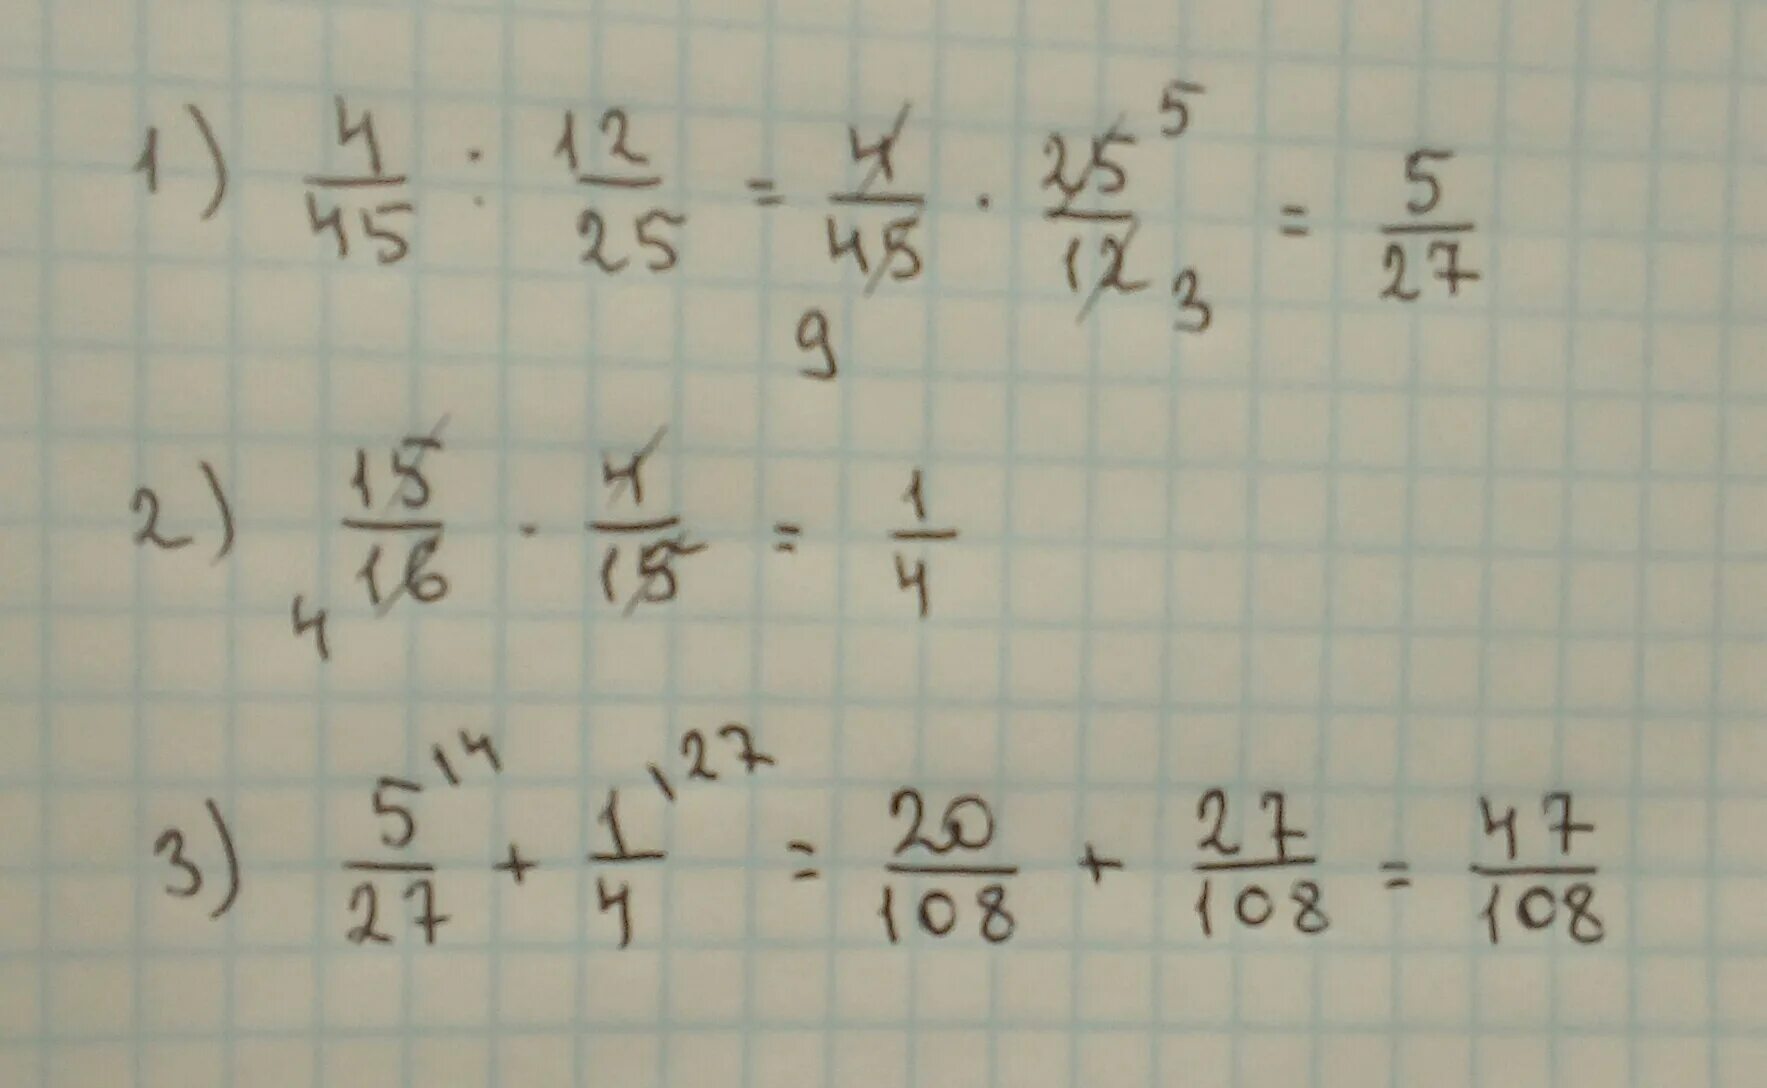 1) 4/45 : 12/25 = 4/45 · 25/12 = 5/27
5
9
3
2) 15/16 · 4/15 = 1/4
4
3) 5/27 + 1/4 = 20/108 + 27/108 = 47/108
\4
\27